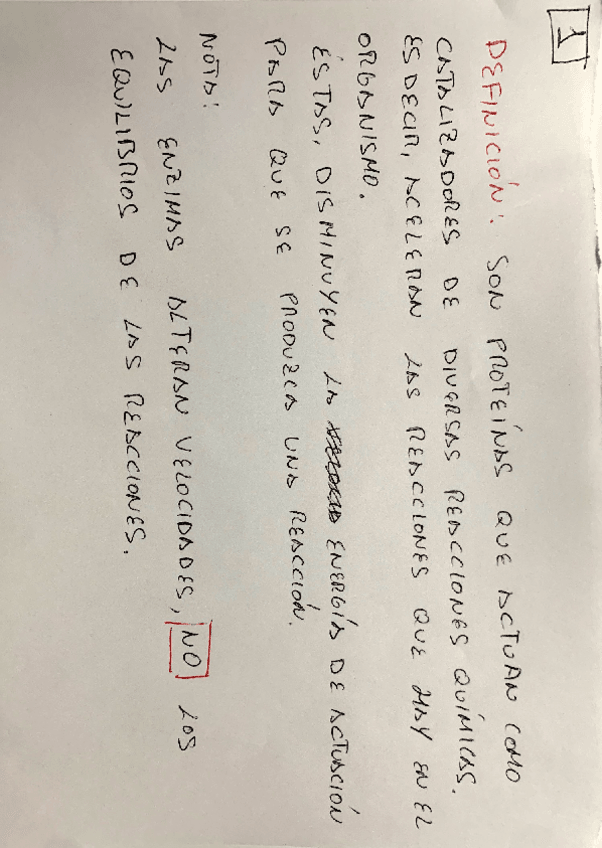 1
DEFINICIÓN: SON PROTEÍNAS QUE ACTUAN COMO
CATALIZADORES DE DIVERSAS REACCIONES QUÍMICAS.
ES DECIR, ACELERAN LAS REACCIONES QUE HAY EN EL
ORGANISMO.
ÉSTAS, DISMINUYEN LA ENERGÍA DE ACTUACIÓN
PARA QUE SE PRODUZCA UNA REACCIÓN.
NOTA:
LAS ENZIMAS ALTERAN VELOCIDADES, NO LOS
EQUILIBRIOS DE LAS REACCIONES.